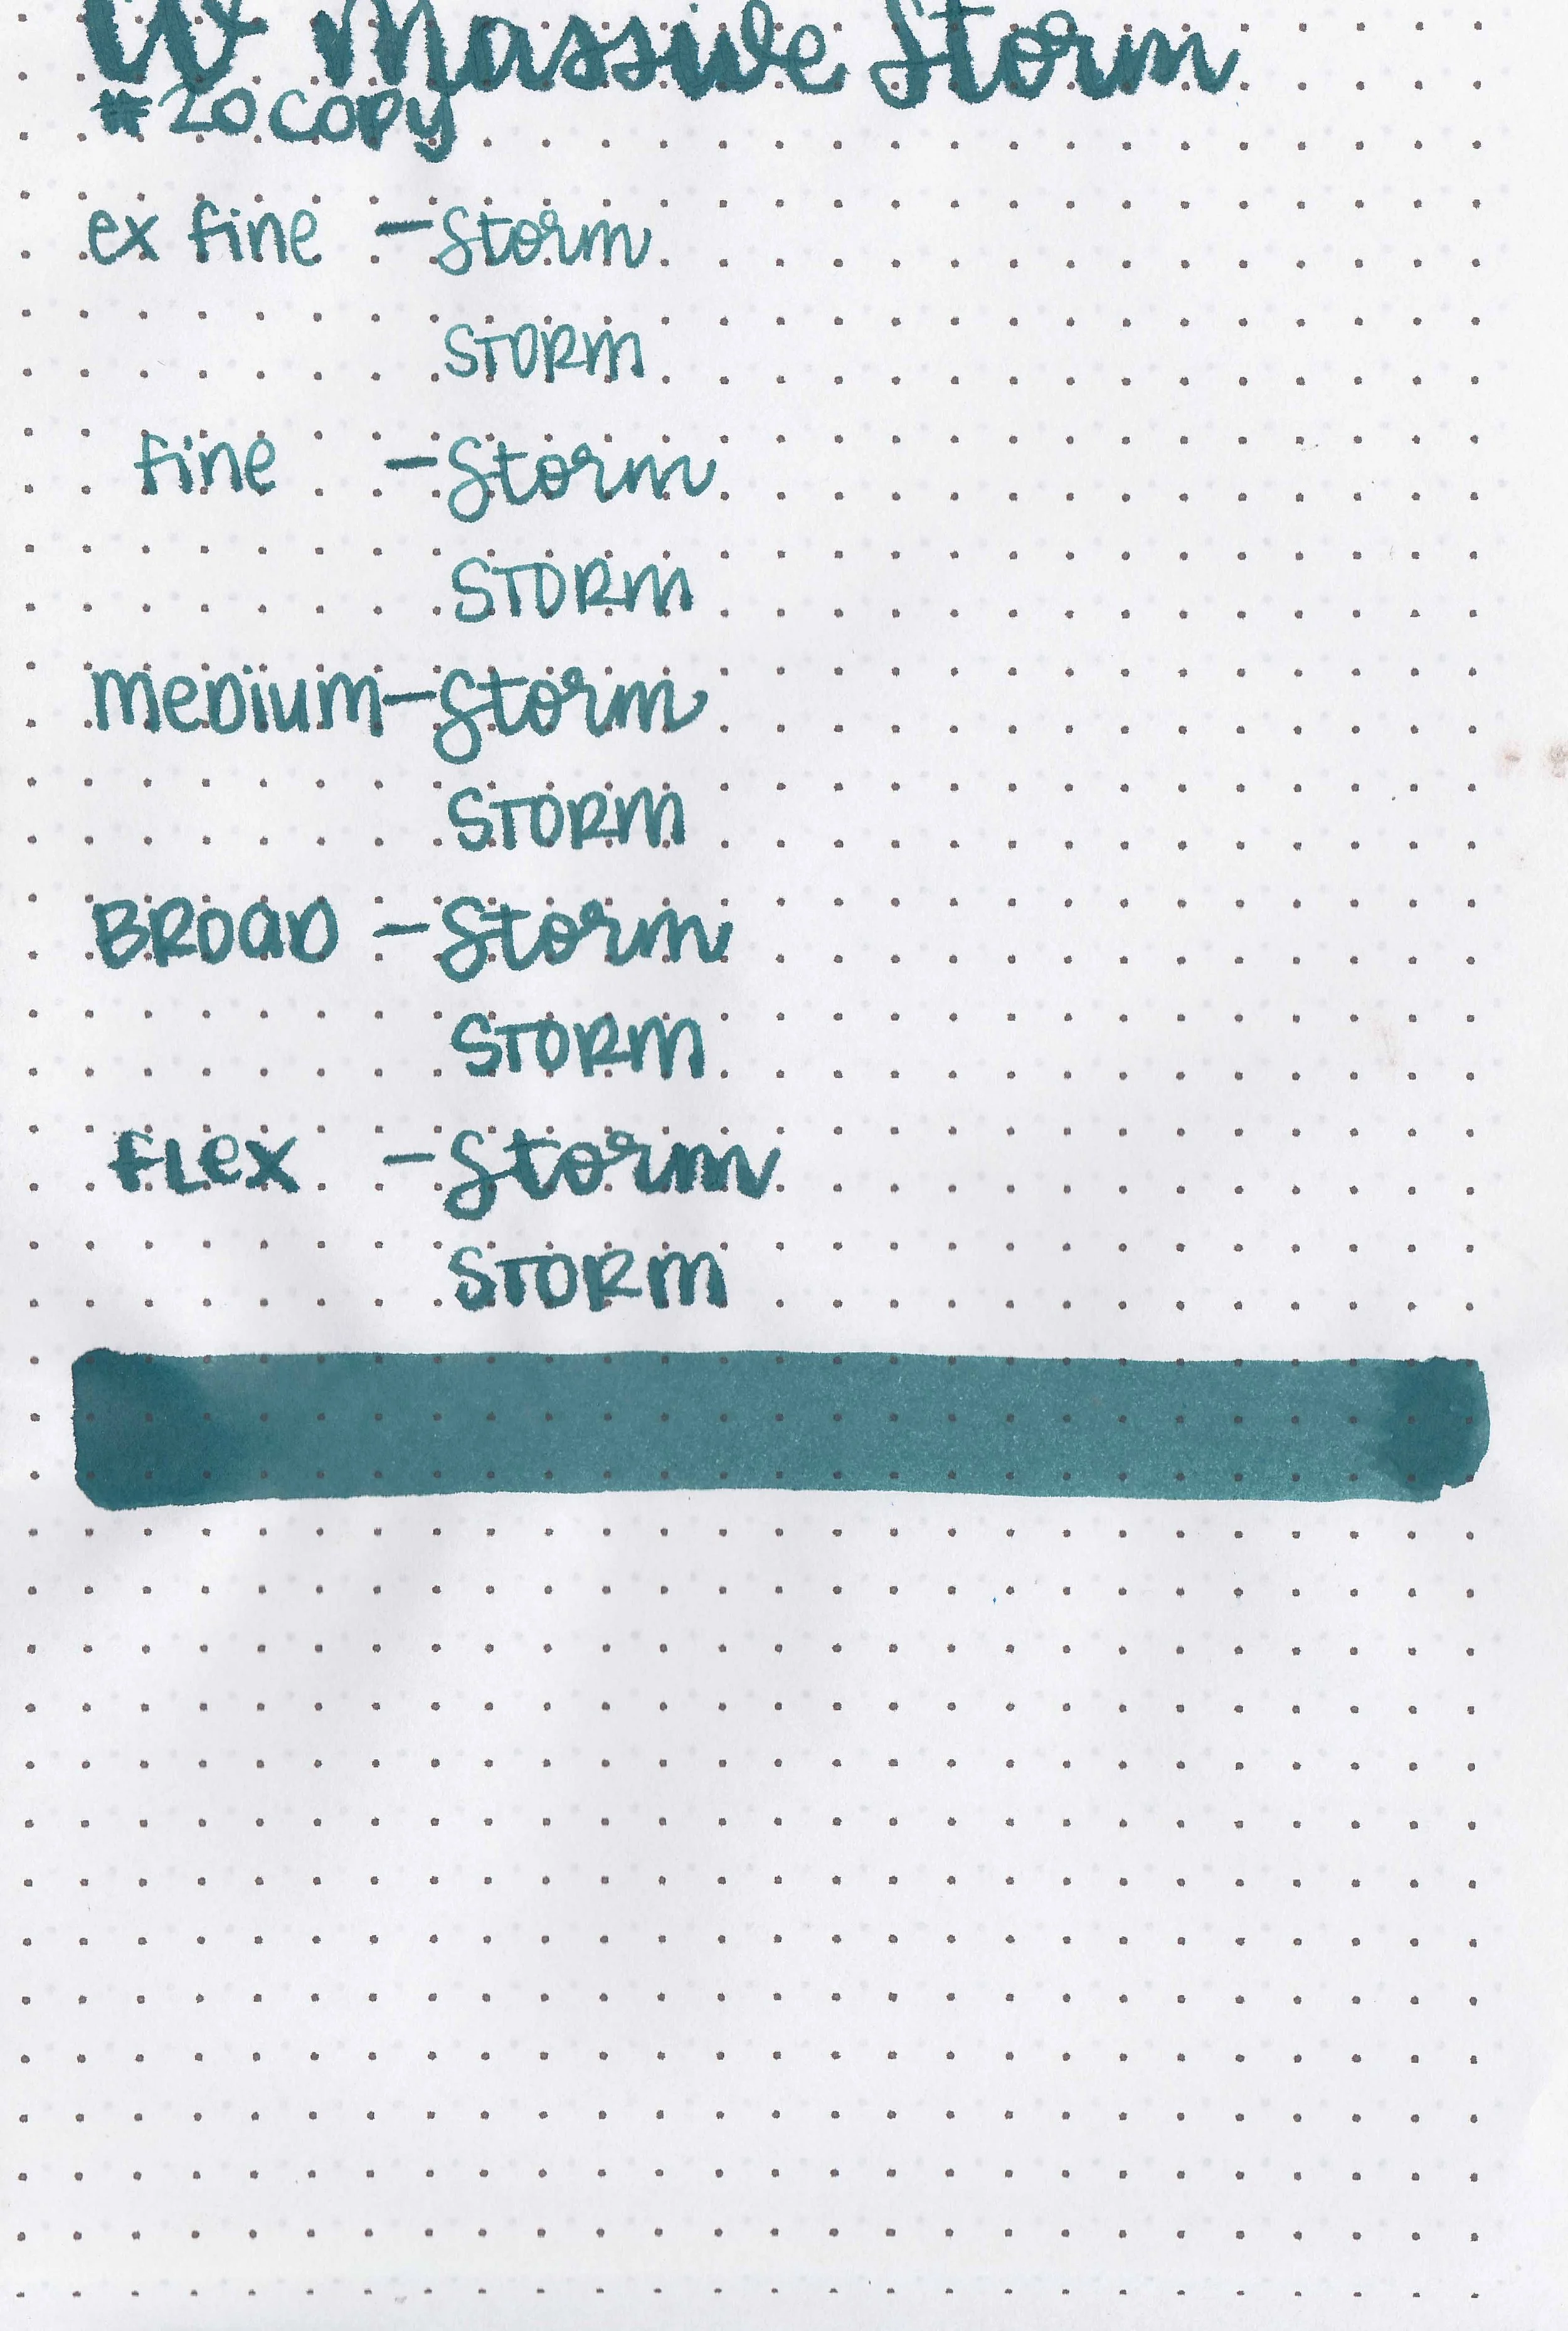 Massive Storm
#20 COPY
ex fine - Storm
STORM
fine - Storm
STORM
meDium - Storm
STORM
BROaD - Storm
STORM
fLex - Storm
STORM